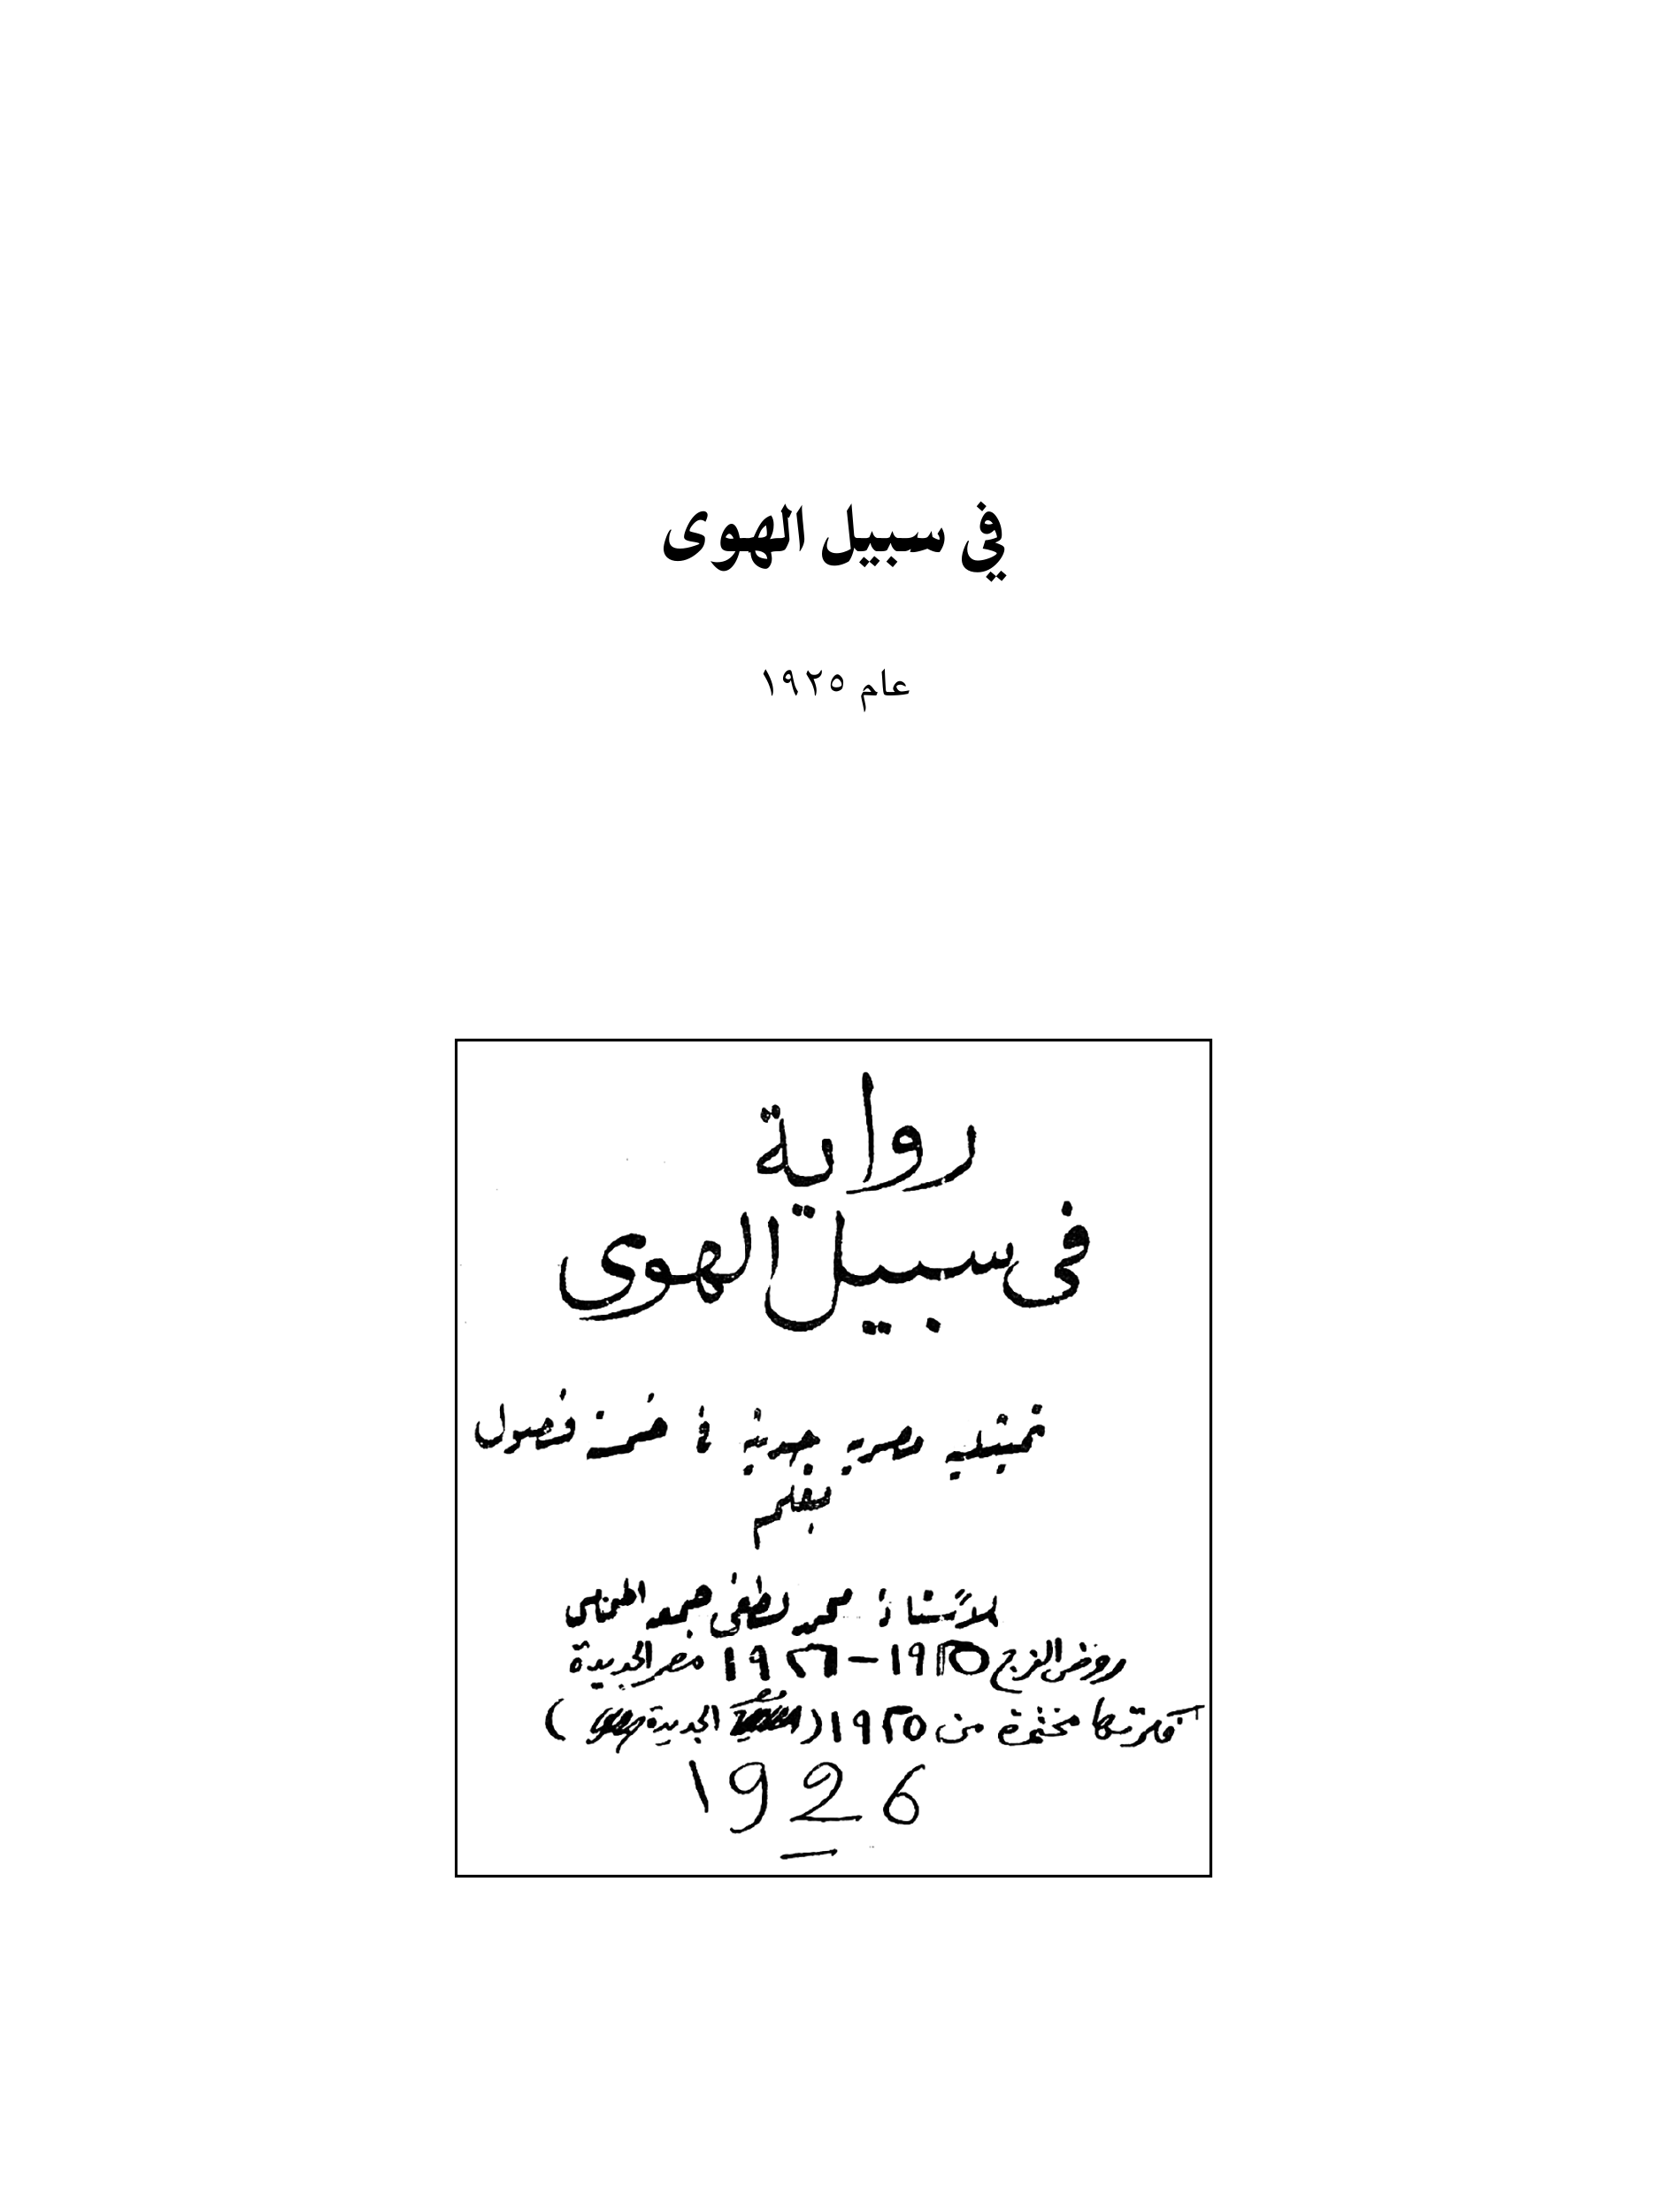 في سبيل الهوى
عام ١٩٢٥
رواية
فى سبيل الهوى
تمثيلية مصرية عصرية فى خمسة فصول
بقلم
الأستاذ محمد لطفى جمعه المحامى
روض الفرج ١٩٢٥–١٩٢٦ مصر الجديدة
١٩٢٥ ( الجديدة )
١926